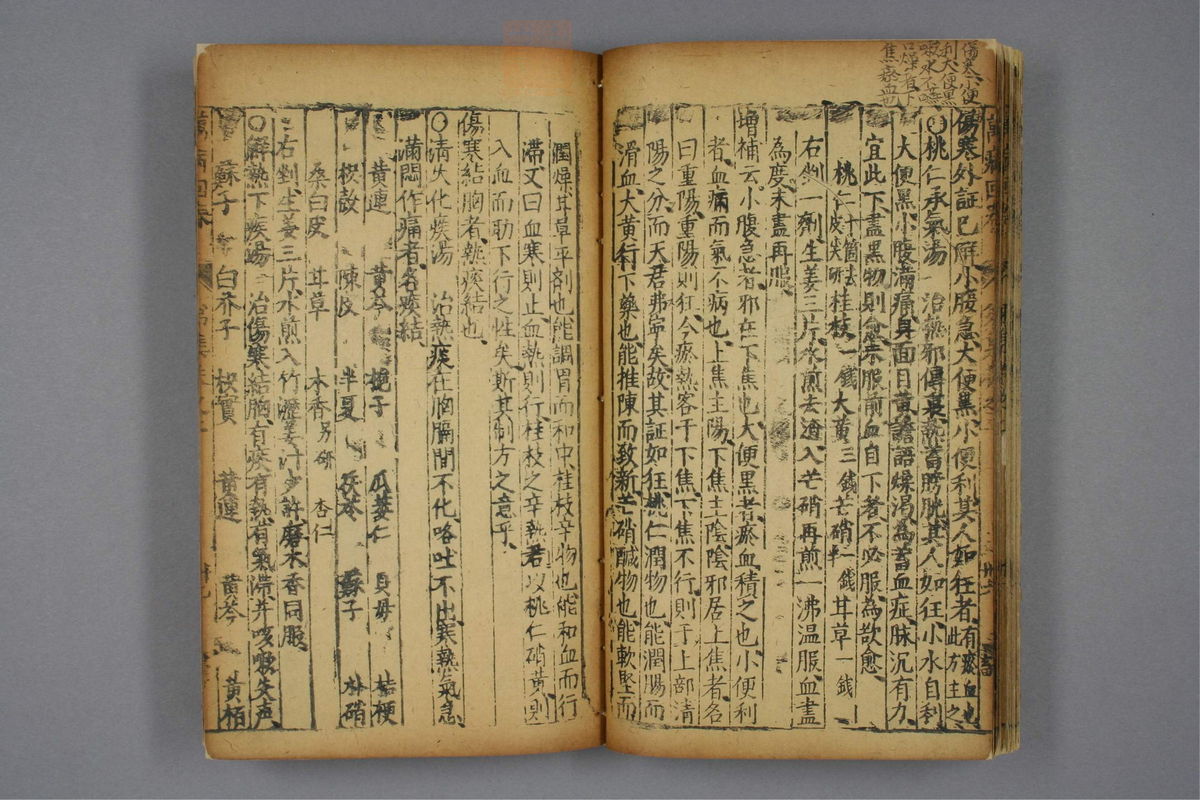 傷寒小便
利大便黒
傷寒外証已解小腹急大便黒小便利其人如狂者有瘀血也
〇桃仁承氣湯 治熱邪傳裏熱蓄膀胱其人如狂小水自利 此方主之
大便黒小腹滿痛身面目黄譫語燥渴為蓄血症脉沉有力
宜此下盡黒物則愈未服前血自下者不必服為欲愈
桃仁十箇去皮尖研 桂枝一錢 大黄三錢 芒硝一錢半 甘草一錢
右剉一劑生姜三片水煎去渣入芒硝再煎一沸温服血盡
為度未盡再服
增補云小腹急者邪在下焦也大便黒者瘀血積之也小便利
者血病而氣不病也上焦主陽下焦主陰陰邪居上焦者名
曰重陽重陽則狂今瘀熱客于下焦下焦不行則于上部清
陽之分而天君弗寧矣故其証如狂桃仁潤物也能潤腸而
滑血大黄行下藥也能推陳而致新芒硝醎物也能軟堅而
潤燥甘草平剤也能調胃而和中桂枝辛物也能和血而行
滯又曰血寒則止血熱則行桂枝之辛熱君以桃仁硝黄則
入血而助下行之性矣斯其制方之意乎
傷寒結胸者熱痰結也
〇清火化痰湯 治熱痰在胸膈間不化咯吐不出寒熱氣急
滿悶作痛者名痰結
黄連 黄芩 梔子 瓜蔞仁 貝母 桔梗
枳殼 陳皮 半夏 茯苓 蘇子 朴硝
桑白皮 甘草 木香另研 杏仁
右剉生姜三片水煎入竹瀝姜汁少許磨木香同服
〇解熱下痰湯 治傷寒結胸有痰有熱有氣滯并咳嗽失声
蘇子 白芥子 枳實 黄連 黄芩 黄栢
萬病回春